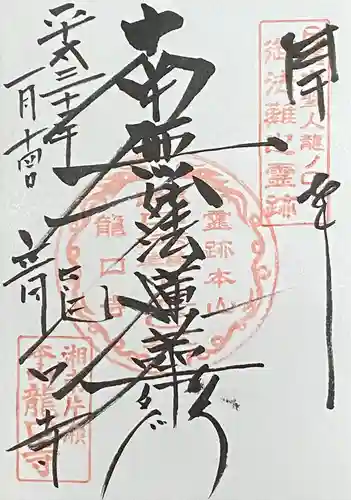 日蓮聖人龍ノ口
御法難之霊跡
南無妙法蓮華経
霊跡本山
龍口寺
平成三十年
一月
龍口寺
湘南片瀬
本山龍口寺